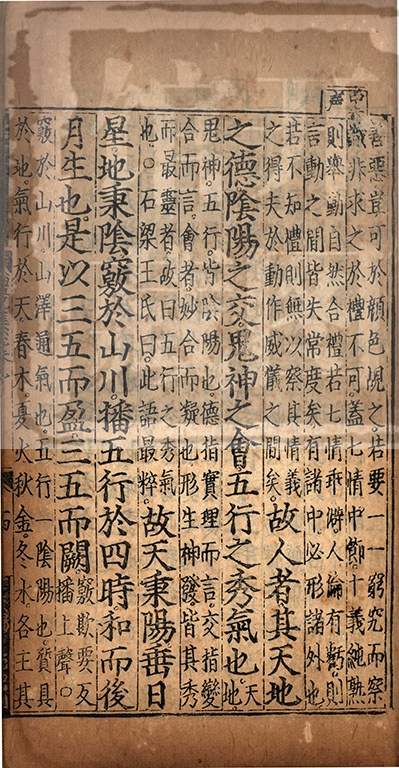 善惡豈可於顏色覘之若要一一窮究而察
識非求之於禮不可蓋七情中節十義純熟
則舉動自然合禮若七情乖僻人倫有虧則
言動之間皆失常度矣有諸中必形諸外也
若不知禮則無以察其情義
之得失於動作威儀之間矣
故人者其天地
之德陰陽之交鬼神之會五行之秀氣也
天
地
鬼神五行皆陰陽也德指實理而言交指變
合而言會者妙合而凝也形生神發皆其秀
而最靈者故曰五行之秀氣
也○石梁王氏曰此語最粹
故天秉陽垂日
星地秉陰竅於山川播五行於四時和而後
月生也是以三五而盈三五而闕
竅欺要反
播上聲○
竅於山川山澤通氣也五行一陰陽也質具
於地氣行於天春木夏火秋金冬水各王其